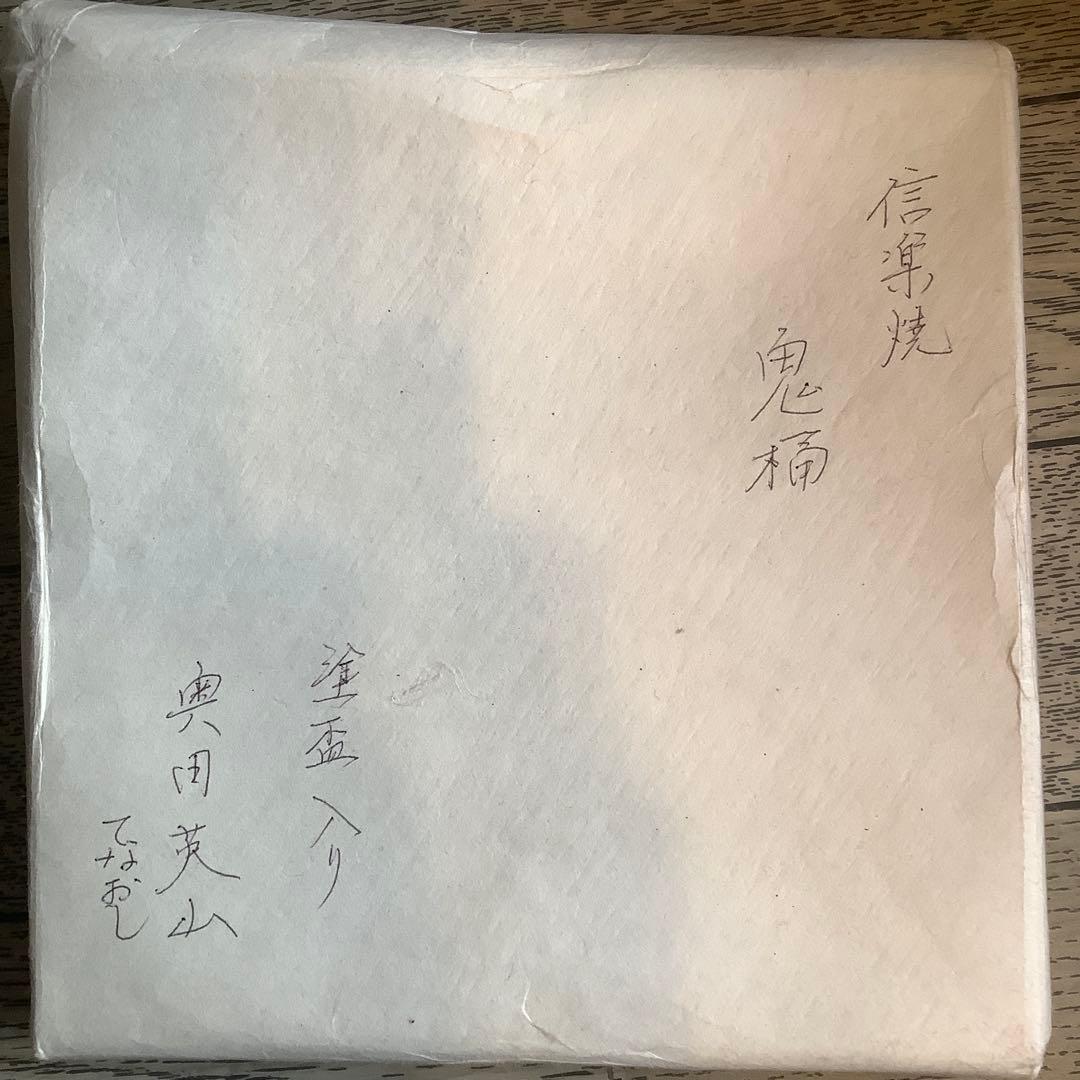 信楽焼
鬼桶
塗盃入り
奥田英山
てなおし